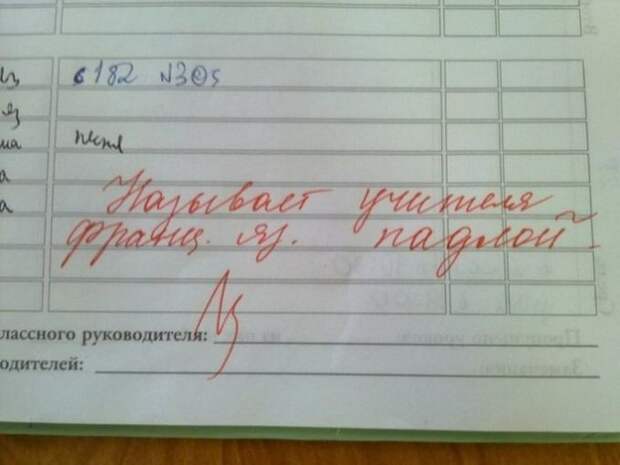 с 182 N3@5
песня
Называет учителя
франц. яз. падлой
лассного руководителя:
одителей: